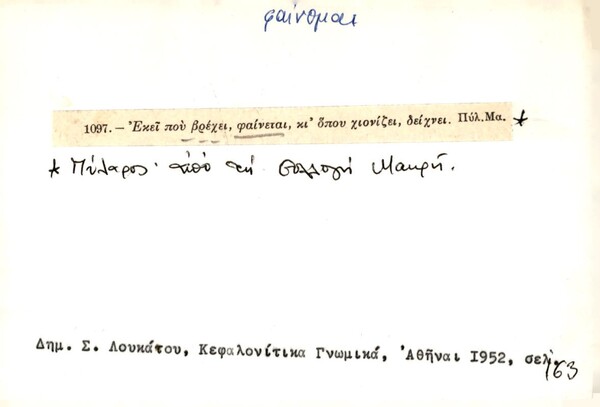 φαίνομαι
1097. — Ἐκεῖ ποὺ βρέχει, φαίνεται, κι' ὅπου χιονίζει, δείχνει. Πύλ.Μα. *
* Πύλαρος· ἀπὸ τὴ συλλογὴ Μακρῆ.
Δημ. Σ. Λουκάτου, Κεφαλονίτικα Γνωμικά, Ἀθῆναι 1952, σελ. 163